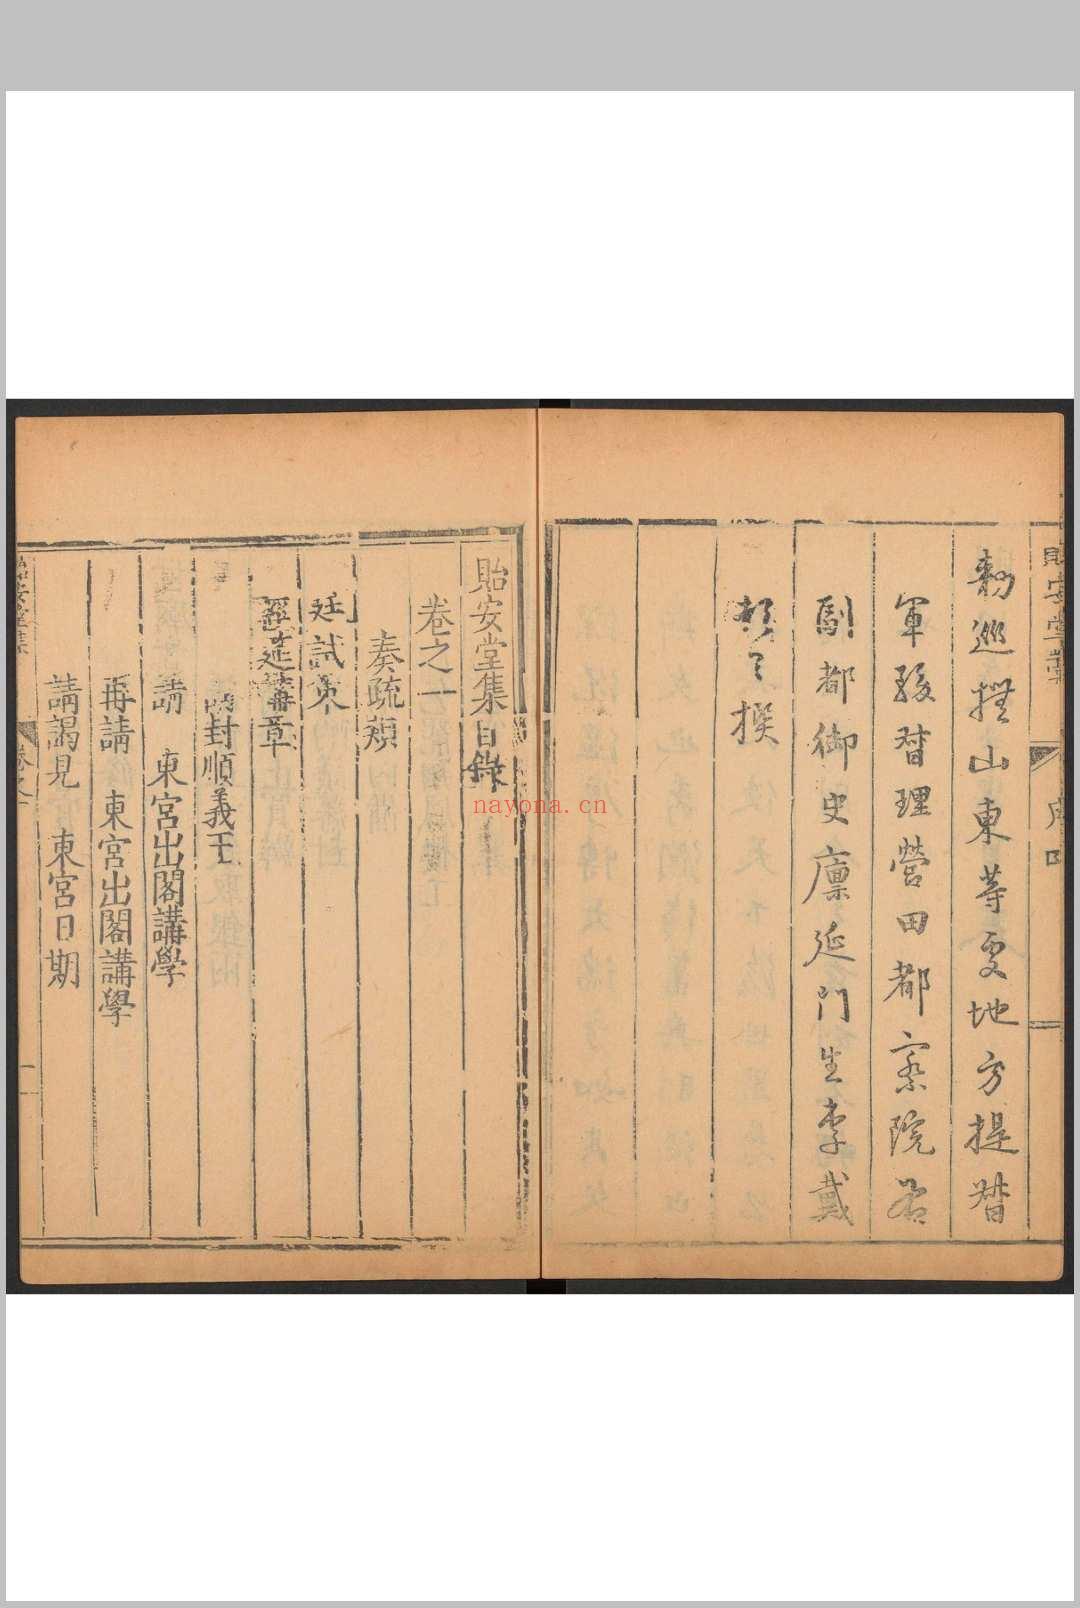 勅巡撫山東等處地方提督
軍務督理營田都察院右
副都御史廩延門生李戴
頓首撰
貽安堂集目錄
卷之一
奏疏類
廷試策
經筵講章
封順義王
請 東宮出閣講學
再請 東宮出閣講學
請謁見 東宮日期
貽安堂集
卷之一
nayona.cn